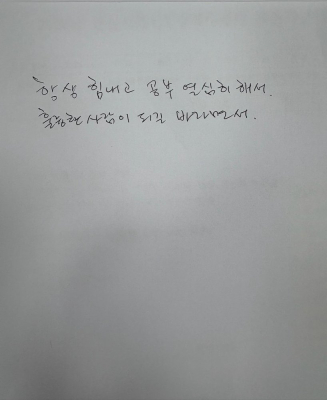 항상 힘내고 공부 열심히 해서.
훌륭한 사람이 되길 바라면서.